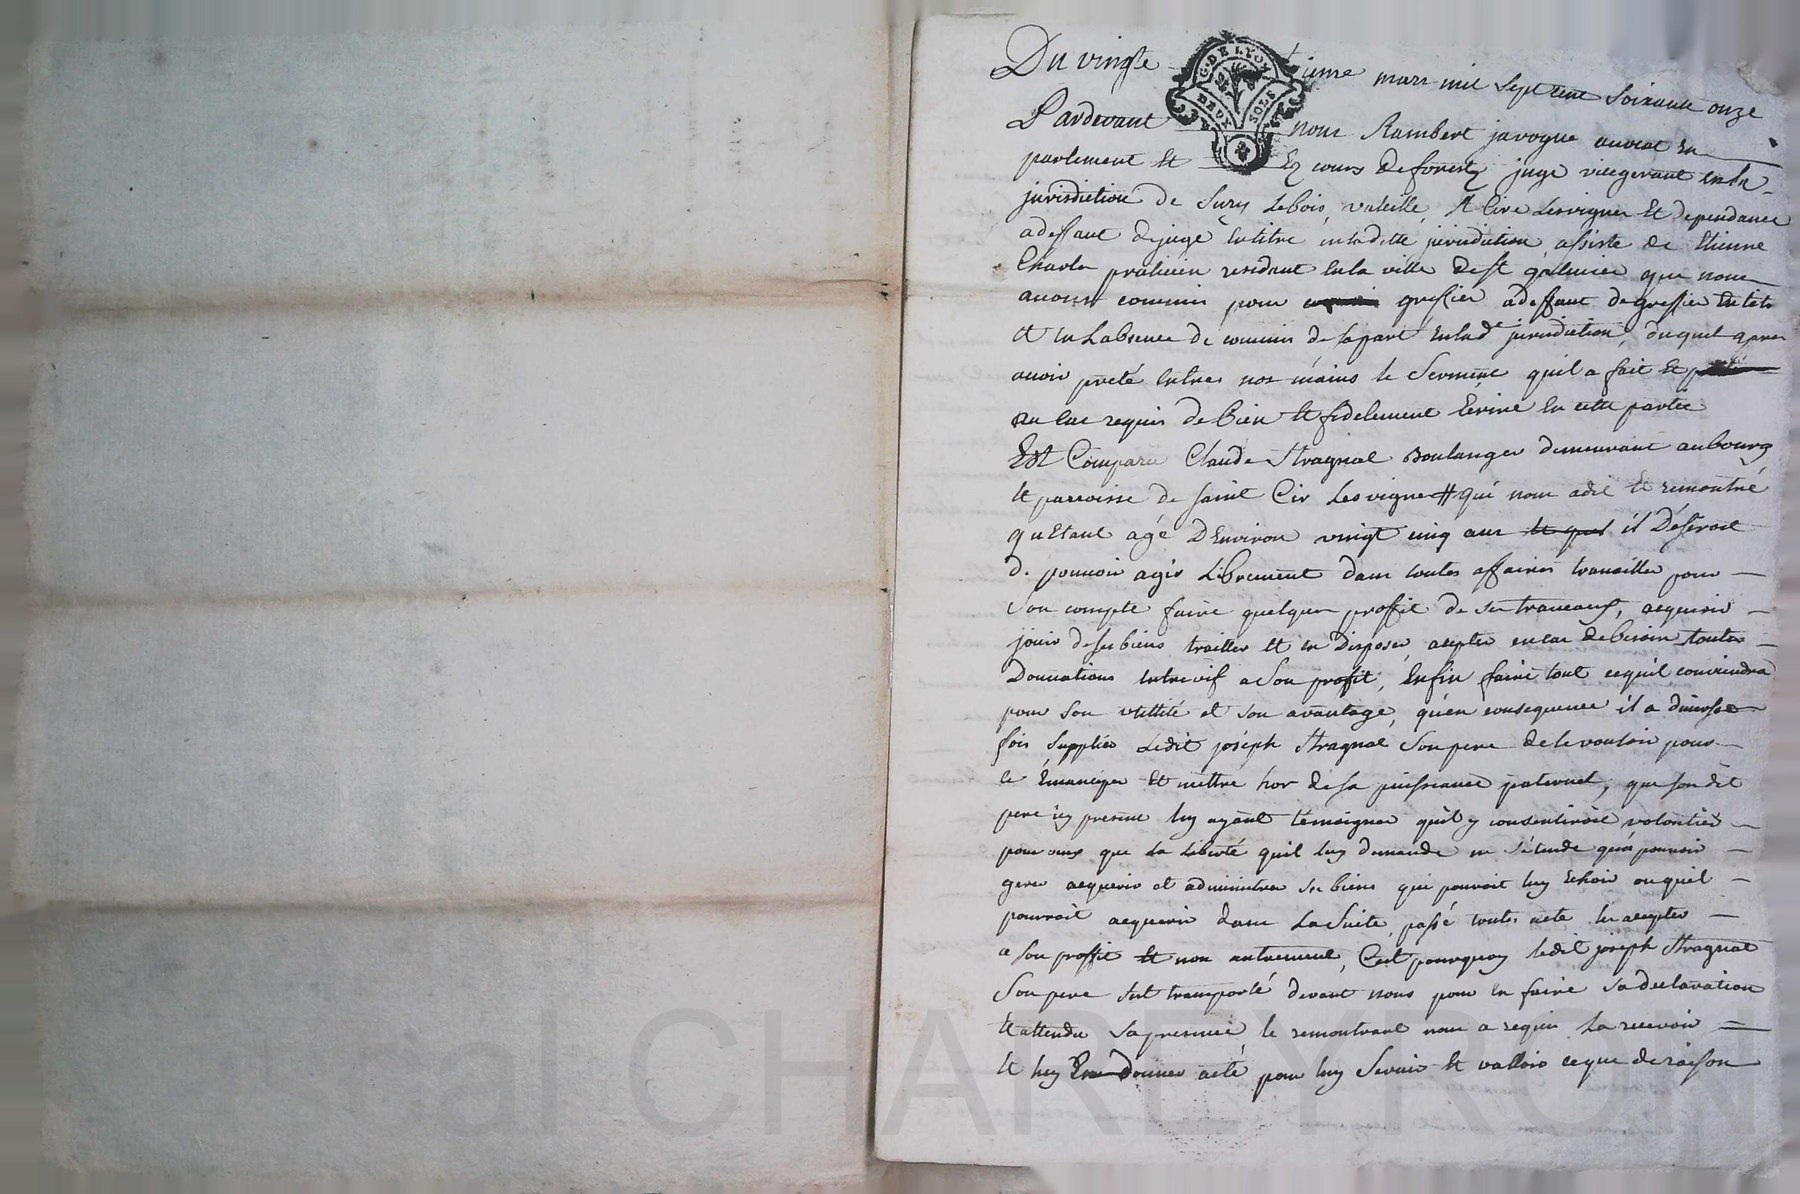 Du vingt ieme mars mil sept cent soixante onze
G. DE LYON
DEUX SOLS
Pardevant nous Rambert javogue avocat en
parlement et Ez cours de forestz juge vicegerant en la
jurisdiction de Sury Lebois, valeille, St Cire Lesvignes et dependance
adeffaut dejuge entitre en ladette jurisdiction assisté de Etienne
Charles praticien residant en la ville de st galmier que nous
avons commis pour greffier adeffaut de greffier en titre
et en Labsence de commis de sa part en lad.e jurisdiction, duquel apres
avoir preté entre nos mains le Serment quil a fait et
en cas requis de bien et fidelement Ecrire en cette partie
Est Comparu Claude Stragnat Boulanger demeurant au bourg
et parroisse de saint Cir Les vignes # qui nous a dit et remontré
qu Etant agé D'Environ vingt cinq ans et que il Desiroit
de pouvoir agir Librement dans toutes affaires travailler pour
Son compte faire quelques proffit de ses traveaux, acquerir
jouir de ses biens traitter et en Disposer, acepter en cas de besoin toutes
Donnations entrevif a Son profit, Enfin faire tout ce quil conviendra
pour son utillité et son avantage, qu'en consequence il a diverses
fois supplier Ledit joseph Stragnat Son pere de le vouloir pour
le Emanciper et mettre hor de sa puissance paternel, que son dit
pere icy present luy ayant temoigner quil y consentiroit volontier
pourveux que La Liberté quil luy demande ne s'etende qu'a pouvoir
gerer acquerir et administrer ses biens qui pouroit luy Echoir ou quil
pourroit acquerir dans La Suite, passé toutes acte les accepter
a son proffit et non autrement, C'est pourquoy ledit joseph Stragnat
Son pere s'est transporté devant nous pour en faire sa declaration
et attendu sa presence, le remontrant nous a requis La recevoir
et luy En Donner acte pour luy servir et valloir ce que de raison
al CHAREYRON